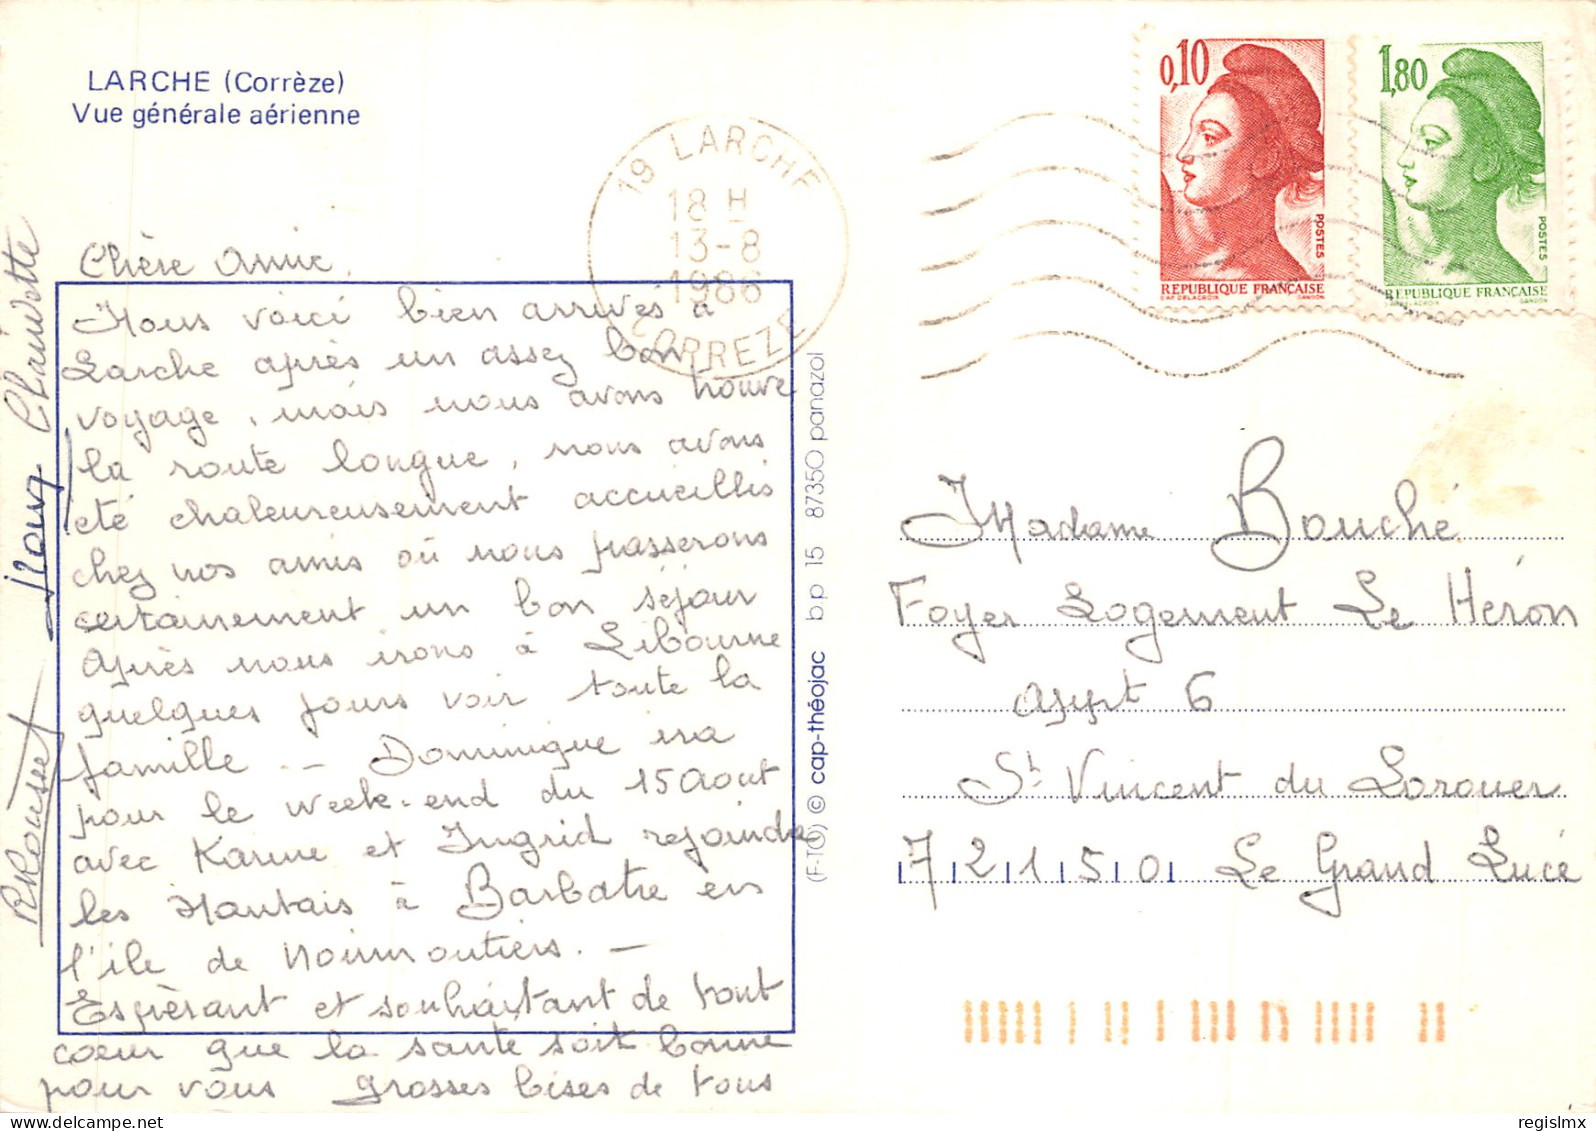 LARCHE (Corrèze)
Vue générale aérienne
19 LARCHE
18 H
13-8
1986
CORREZE
0,10
POSTES
RÉPUBLIQUE FRANÇAISE
D'AP. DELACROIX GANDON
1,80
POSTES
RÉPUBLIQUE FRANÇAISE
D'AP. DELACROIX GANDON
Chère Annie,
Nous voici bien arrivés à
Larche après un assez bon
voyage, mais nous avons trouvé
la route longue, nous avons
été chaleureusement accueillis
chez nos amis où nous passerons
certainement un bon séjour
Après nous irons à Libourne
quelques jours voir toute la
famille -- Dominique ira
pour le week-end du 15 Aout
avec Karine et Ingrid rejoindre
les Nantais à Barbatre en
l'île de Noirmoutiers. -
Espèrant et souhaitant de tout
coeur que la santé soit bonne
pour vous grosses bises de tous
Claudette
(F-TO) © cap-théojac bp 15 87350 panazol
Madame Bouché
Foyer Logement Le Héron
Appt 6
St Vincent du Lorouer
72150 Le Grand Lucé
delcampe.net
regislmx